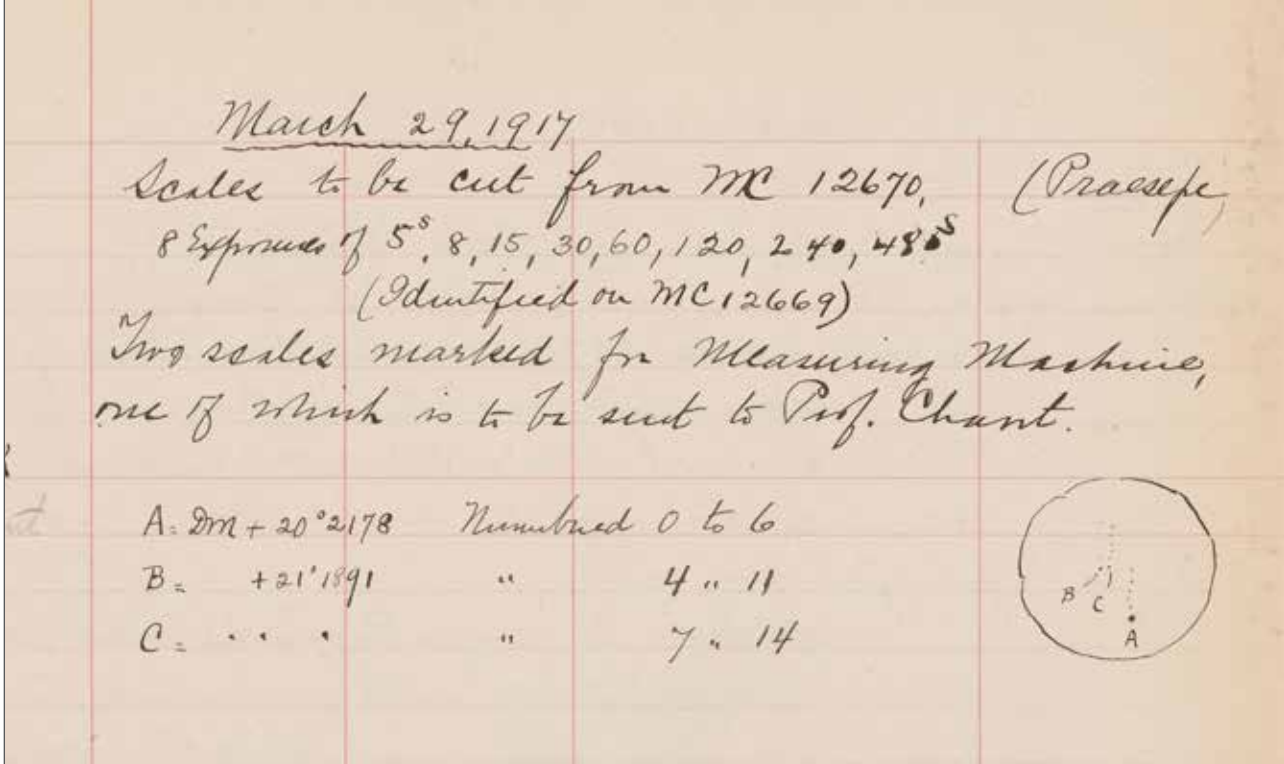 March 29, 1917
Scales to be cut from MC 12670, (Praesepe)
8 Exposures of 5ˢ, 8, 15, 30, 60, 120, 240, 480ˢ
(Identified on MC 12669)
Two scales marked for Measuring Machine,
one of which is to be sent to Prof. Chant.
A = DM + 20°2178 Numbered 0 to 6
B = +21°1891 " 4 " 11
C = " " " " 7 " 14
B C
A